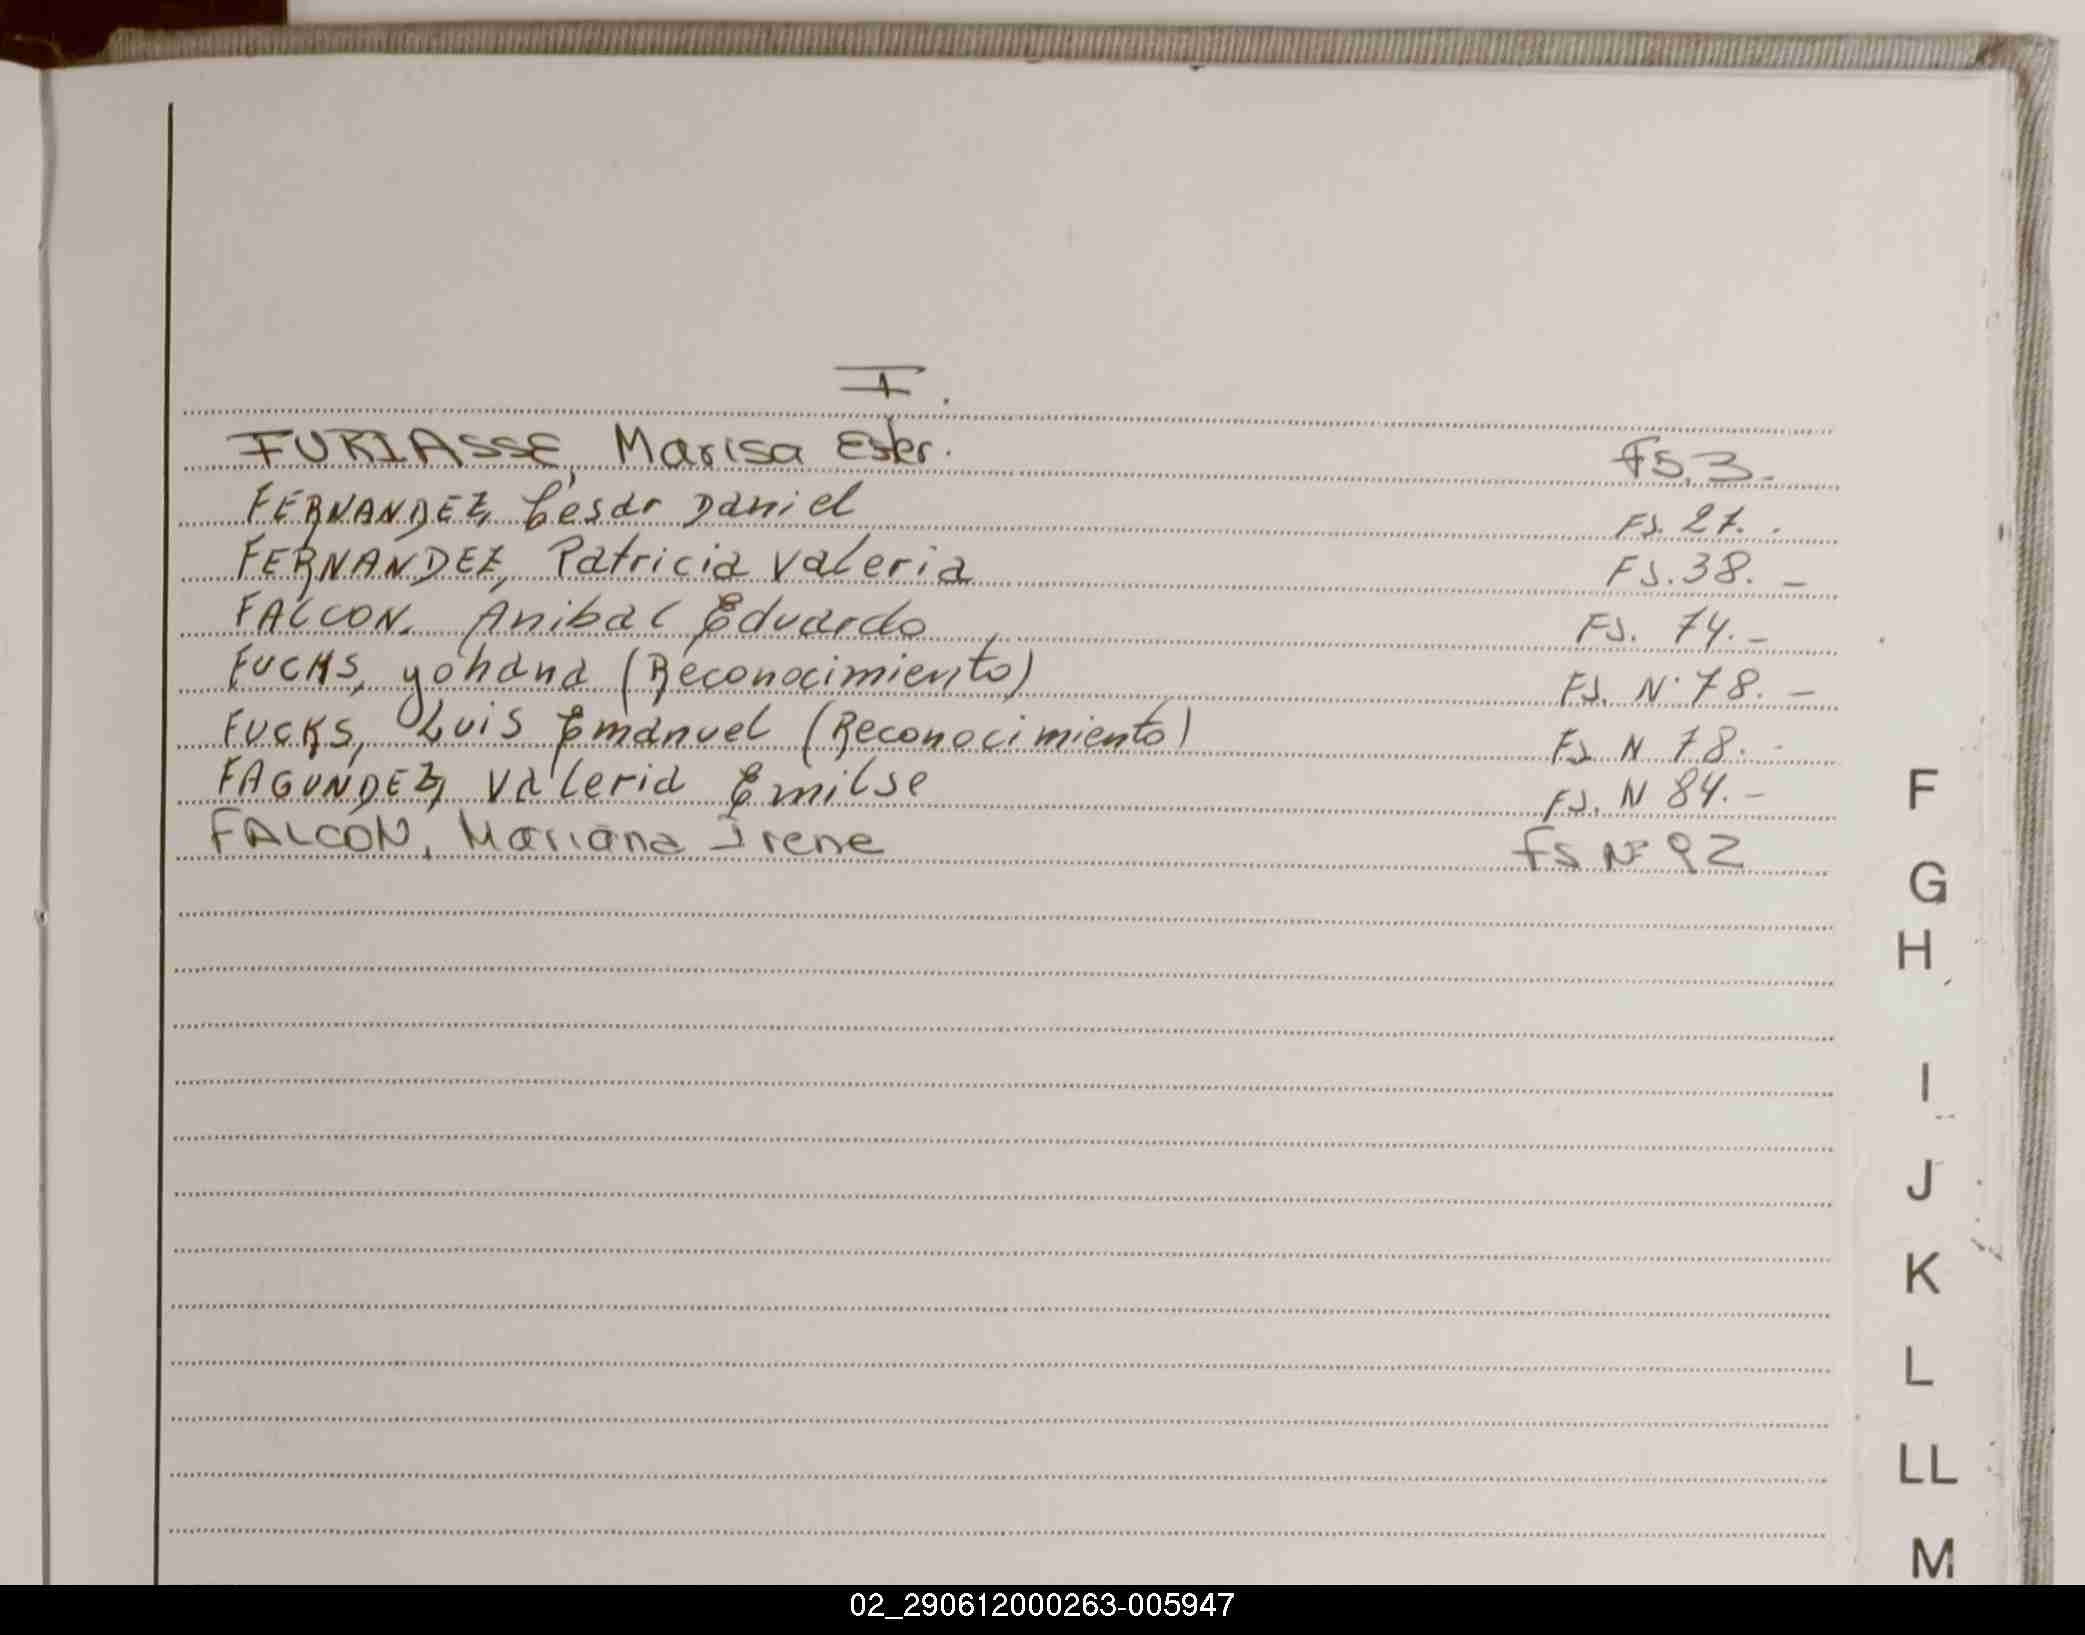 F.
FURIASSE, Marisa Ester. Fs. 3.-
FERNANDEZ, César Daniel Fs. 27. -
FERNANDEZ, Patricia Valeria Fs. 38. -
FALCON. Anibal Eduardo Fs. 74. -
FUCHS, yohana (Reconocimiento) Fs. Nº 78. -
FUCKS, Luis Emanuel (Reconocimiento) Fs N 78. -
FAGUNDEZ, Valeria Emilse Fs. N 84. -
FALCON, Mariana Irene Fs Nº 92
F
G
H
I
J
K
L
LL
M
02_290612000263-005947